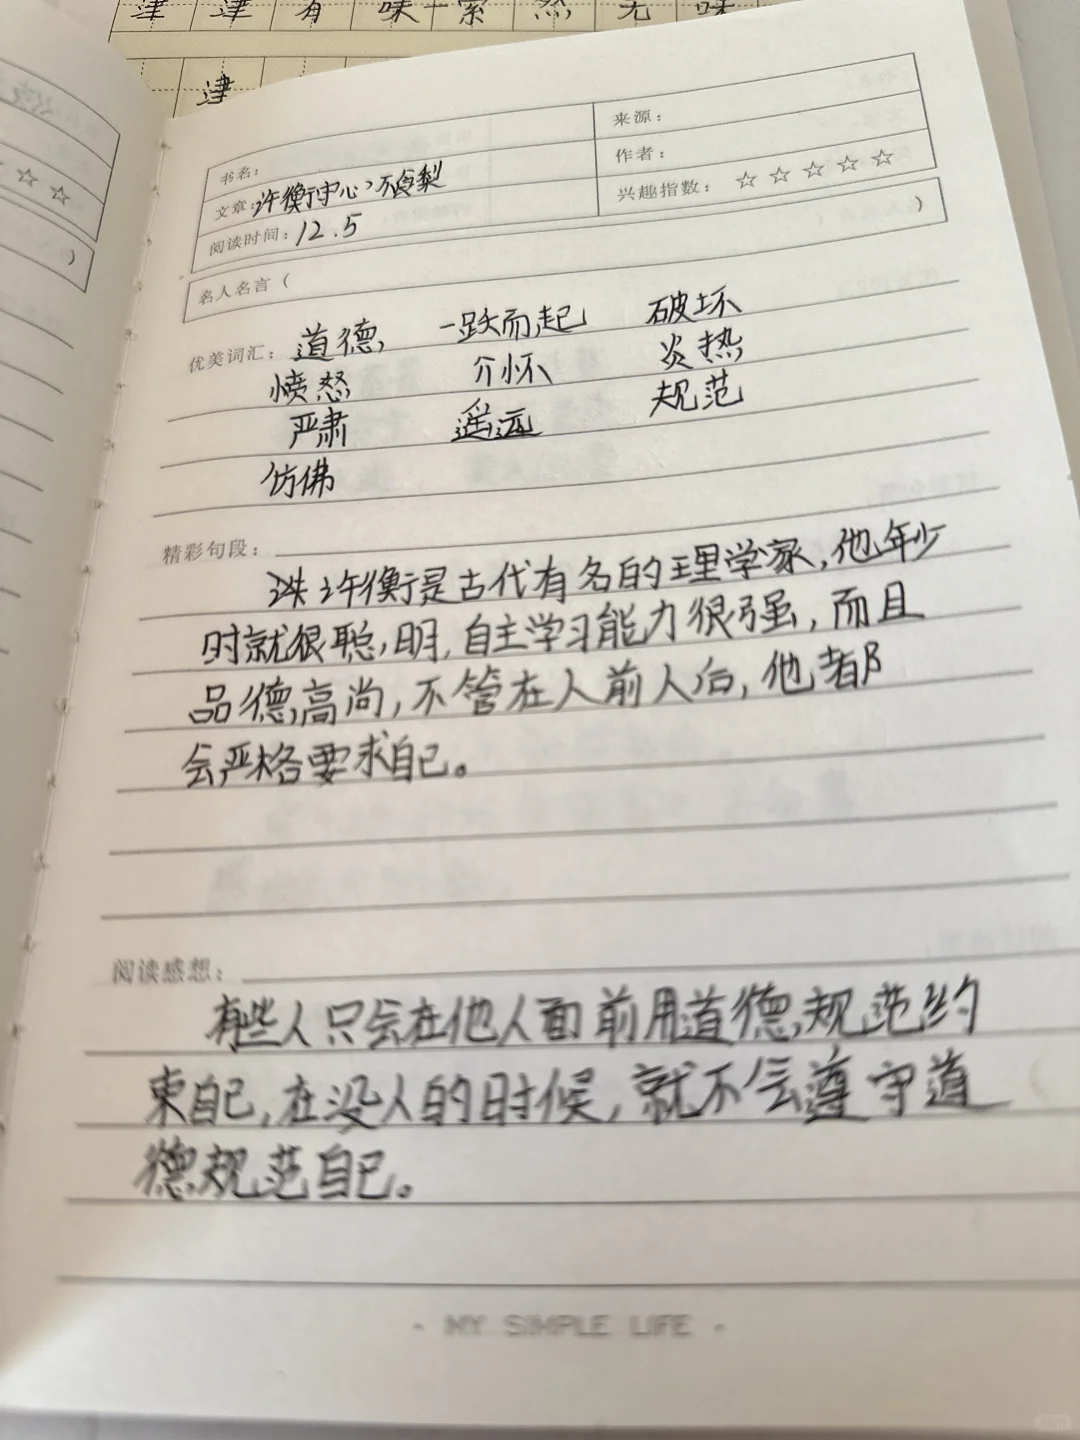 津 津 有 味 索 然 无 味
津
书名：
来源：
文章：许衡守心，不食梨
作者：
阅读时间：12.5
兴趣指数：☆☆☆☆☆
名人名言（ ）
优美词汇：道德 一跃而起 破坏
愤怒 介怀 炎热
严肃 遥远 规范
仿佛
精彩句段：
许衡是古代有名的理学家，他年少
时就很聪明，自主学习能力很强，而且
品德高尚，不管在人前人后，他都
会严格要求自己。
阅读感想：
有些人只会在他人面前用道德规范约
束自己，在没人的时候，就不会遵守道
德规范自己。
- MY SIMPLE LIFE -